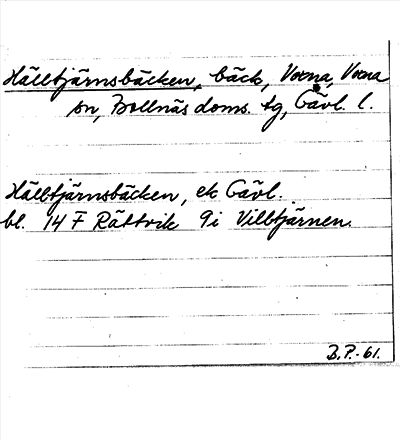 Hälltjärnsbäcken, bäck, Voxna, Voxna
sn, Bollnäs doms. tg, Gävl. l.
Hälltjärnsbäcken, ek Gävl.
bl. 14 F Rättvik 9i Villtjärnen.
B.P.-61.